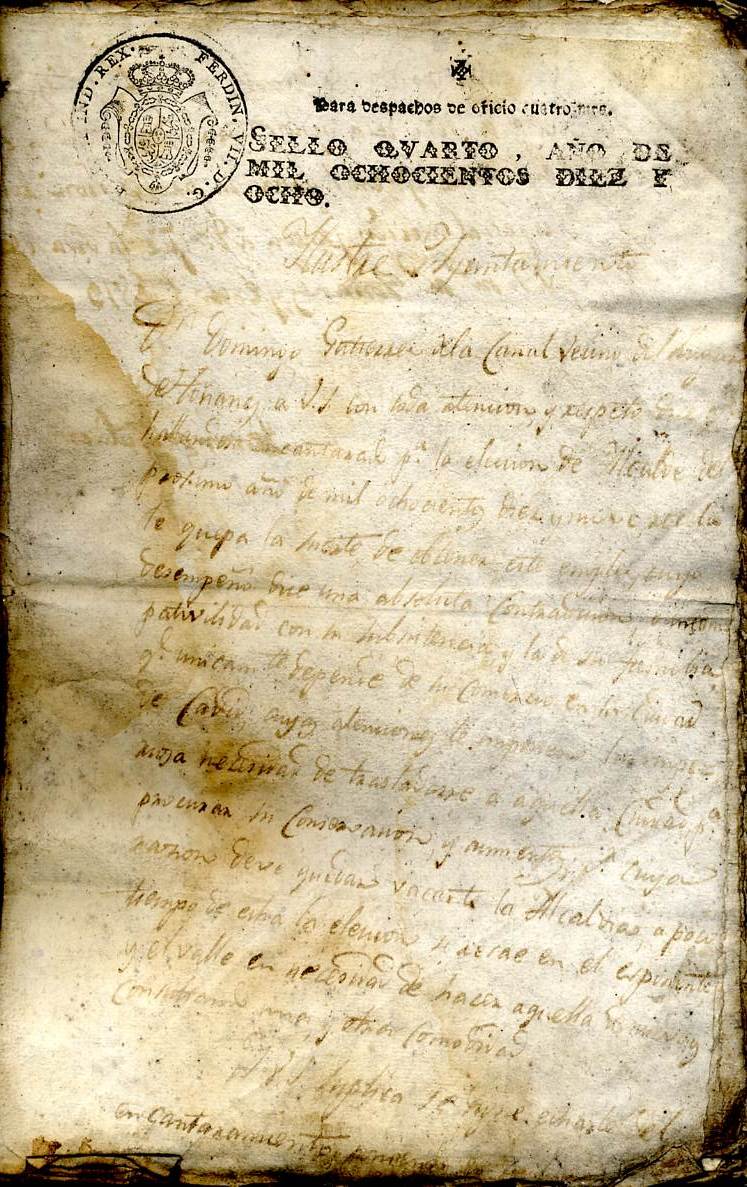 FERDIN. VII. D. G. IND. REX.
Para despachos de oficio cuatro mrs.
SELLO QVARTO, AÑO DE
MIL OCHOCIENTOS DIEZ Y
OCHO.
Ilustre Ayuntamiento
Dn. Domingo Gutierrez dela Canal vecino del
de a V.S. con toda atencion, y respeto
hallandose encantarado pa. la elecion de Alcalde del
proximo año de mil ochocientos diez y nueve
le quepa la suerte de obtener este empleo, cuyo
desempeño dice una absoluta Contradicion, o incom
pativilidad con su subsistencia y la de su familia
qe. unicamte. depende de su Comercio en la Ciudad
de Cadiz, cuyas atenciones le imponen la
necesidad de trasladarse a aquella Ciudad pa.
procurar su Conservacion, y aumento, pr. cuya
razon deve quedar vacante la Alcaldia, a poco
tiempo de echa la elecion si recae en el esponente
y el valle en necesidad de hacer aquella de nuevo y
una, y otra comodidad.
A V.S. Suplica se sirva echarle del
encantaramiento,